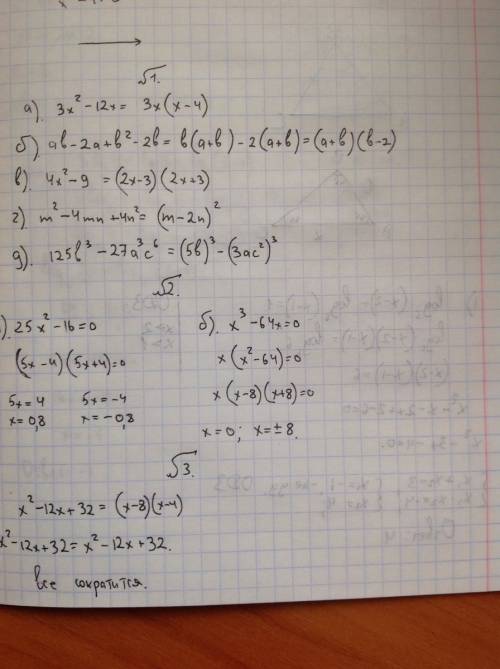 №1.
а). 3x² - 12x = 3x(x - 4)
б). ab - 2a + b² - 2b = b(a+b) - 2(a+b) = (a+b)(b-2)
в). 4x² - 9 = (2x-3)(2x+3)
г). m² - 4mn + 4n² = (m - 2n)²
д). 125b³ - 27a³c⁶ = (5b)³ - (3ac²)³
№2.
). 25x² - 16 = 0
(5x - 4)(5x + 4) = 0
5x = 4 5x = -4
x = 0,8 x = -0,8
б). x³ - 64x = 0
x(x² - 64) = 0
x(x-8)(x+8) = 0
x = 0; x = ± 8.
№3.
x² - 12x + 32 = (x-8)(x-4)
x² - 12x + 32 = x² - 12x + 32.
все сократится.